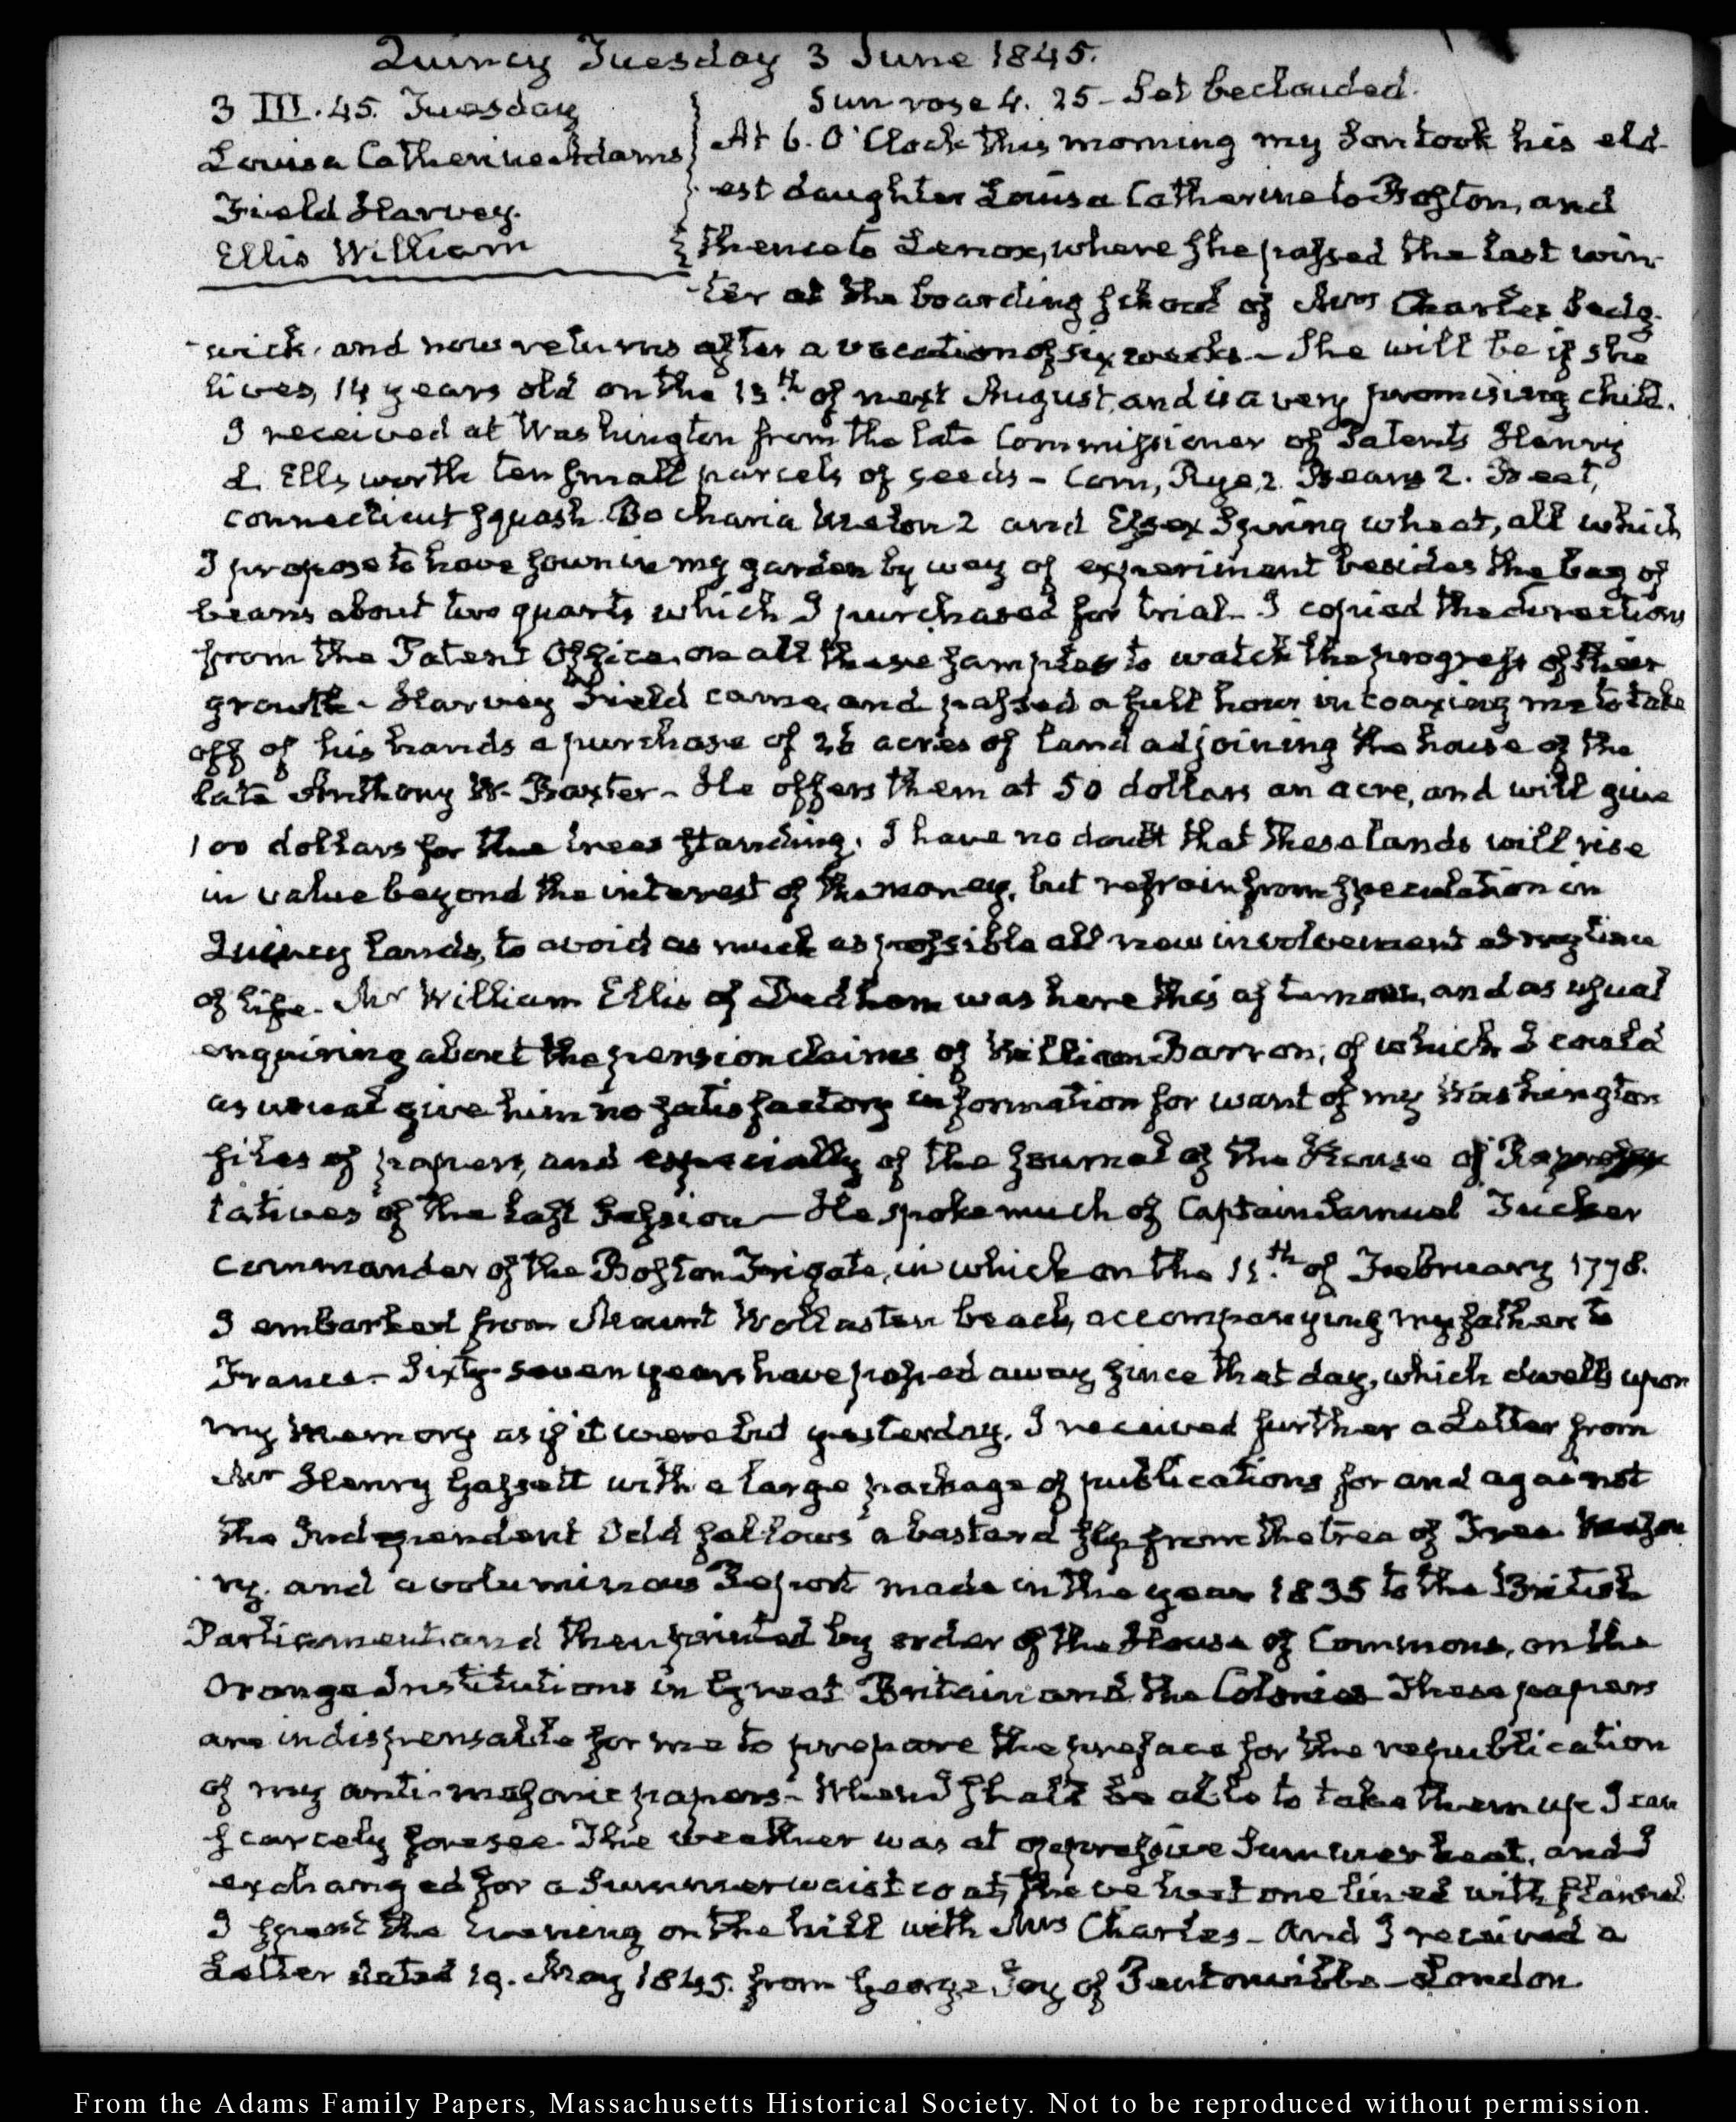 Quincy Tuesday 3 June 1845.
3 III. 45. Tuesday
Louisa Catherine Adams
Field Harvey.
Ellis William
Sun rose 4. 25 - Set beclouded.
At 6. O'Clock this morning my Son took his eld-
est daughter Louisa Catherine to Boston, and
thence to Lenox, where she passed the last win-
-ter at the boarding school of Mrs Charles Sedg-
-wick and now returns after a vacation of six weeks - She will be if she
lives, 14 years old on the 13th of next August, and is a very promising child.
I received at Washington from the late Commissioner of Patents Henry
L. Ellsworth ten small parcels of seeds - Corn, Rye, 2. Beans 2. Beet,
Connecticut squash. Bocharia Melon 2 and Essex Spring wheat, all which
I propose to have sown in my garden by way of experiment besides the bag of
beans about two quarts which I purchased for trial - I copied the directions
from the Patent Office, on all these samples to watch the progress of their
growth - Harvey Field came, and passed a full hour in coaxing me to take
off of his hands a purchase of 26 acres of land adjoining the house of the
late Anthony W. Baxter - He offers them at 50 dollars an acre, and will give
100 dollars for the trees standing. I have no doubt that these lands will rise
in value beyond the interest of the money, but refrain from speculation in
Quincy lands, to avoid as much as possible all new involvement at my time
of life - Mr William Ellis of Dedham was here this afternoon, and as usual
enquiring about the pension claims of William Barron, of which I could
as usual give him no satisfactory information for want of my Washington
files of papers, and especially of the Journal of the House of Represen
tatives of the last Session - He spoke much of Captain Samuel Tucker
Commander of the Boston Frigate, in which on the 13th of February 1778.
I embarked from Mount Wollaston beach, accompanying my father to
France - Sixty-seven years have passed away since that day, which dwells upon
my memory as if it were but yesterday. I received further a Letter from
Mr Henry Gassett with a large package of publications for and against
the Independent Odd fellows a bastard slip from the tree of Free Mason
ry. and a voluminous Report made in the year 1835 to the British
Parliament and then printed by order of the House of Commons, on the
Orange Institutions in Great Britain and the Colonies These papers
are indispensable for me to prepare the preface for the republication
of my anti-masonic papers - When I shall be able to take them up I can
scarcely foresee. The weather was at oppressive Summer heat, and I
exchanged for a Summer waistcoat, the velvet one lined with flannel
I spent the Evening on the hill with Mrs Charles - And I received a
Letter dated 19. May 1845. from George Joy of Pentonville - London
From the Adams Family Papers, Massachusetts Historical Society. Not to be reproduced without permission.